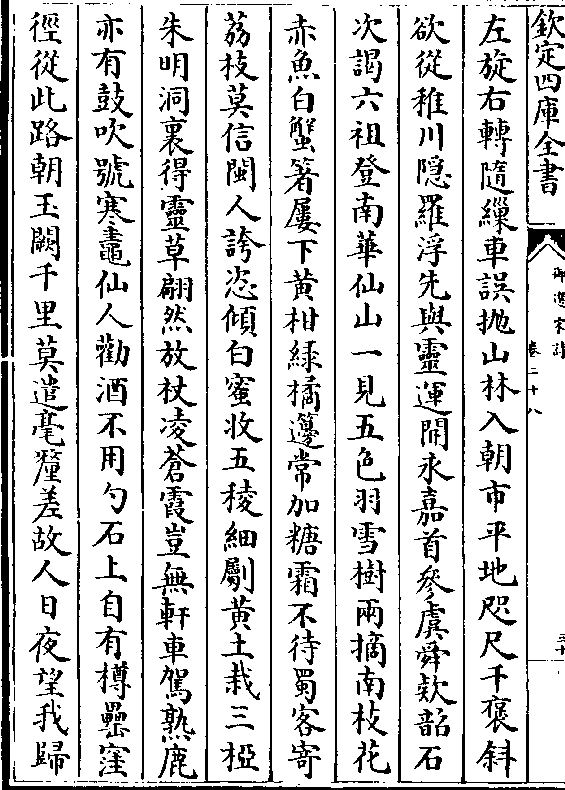 欽定四庫全書
御選宋詩
卷二十八
三十
左旋右轉隨繅車誤抛山林入朝市平地咫尺千褒斜
欲從稚川隠羅浮先與靈運開永嘉首參虞舜欵韶石
次謁六祖登南華仙山一見五色羽雪樹兩摘南枝花
赤魚白蟹箸屢下黄柑緑橘籩常加糖霜不待蜀客寄
荔枝莫信閩人誇恣傾白蜜收五稜細劚黄土栽三椏
朱明洞裏得靈草翩然放杖凌蒼霞豈無軒車駕熟鹿
亦有鼓吹號寒鼃仙人勸酒不用勺石上自有樽罍窪
徑從此路朝玉闕千里莫遣毫釐差故人日夜望我歸